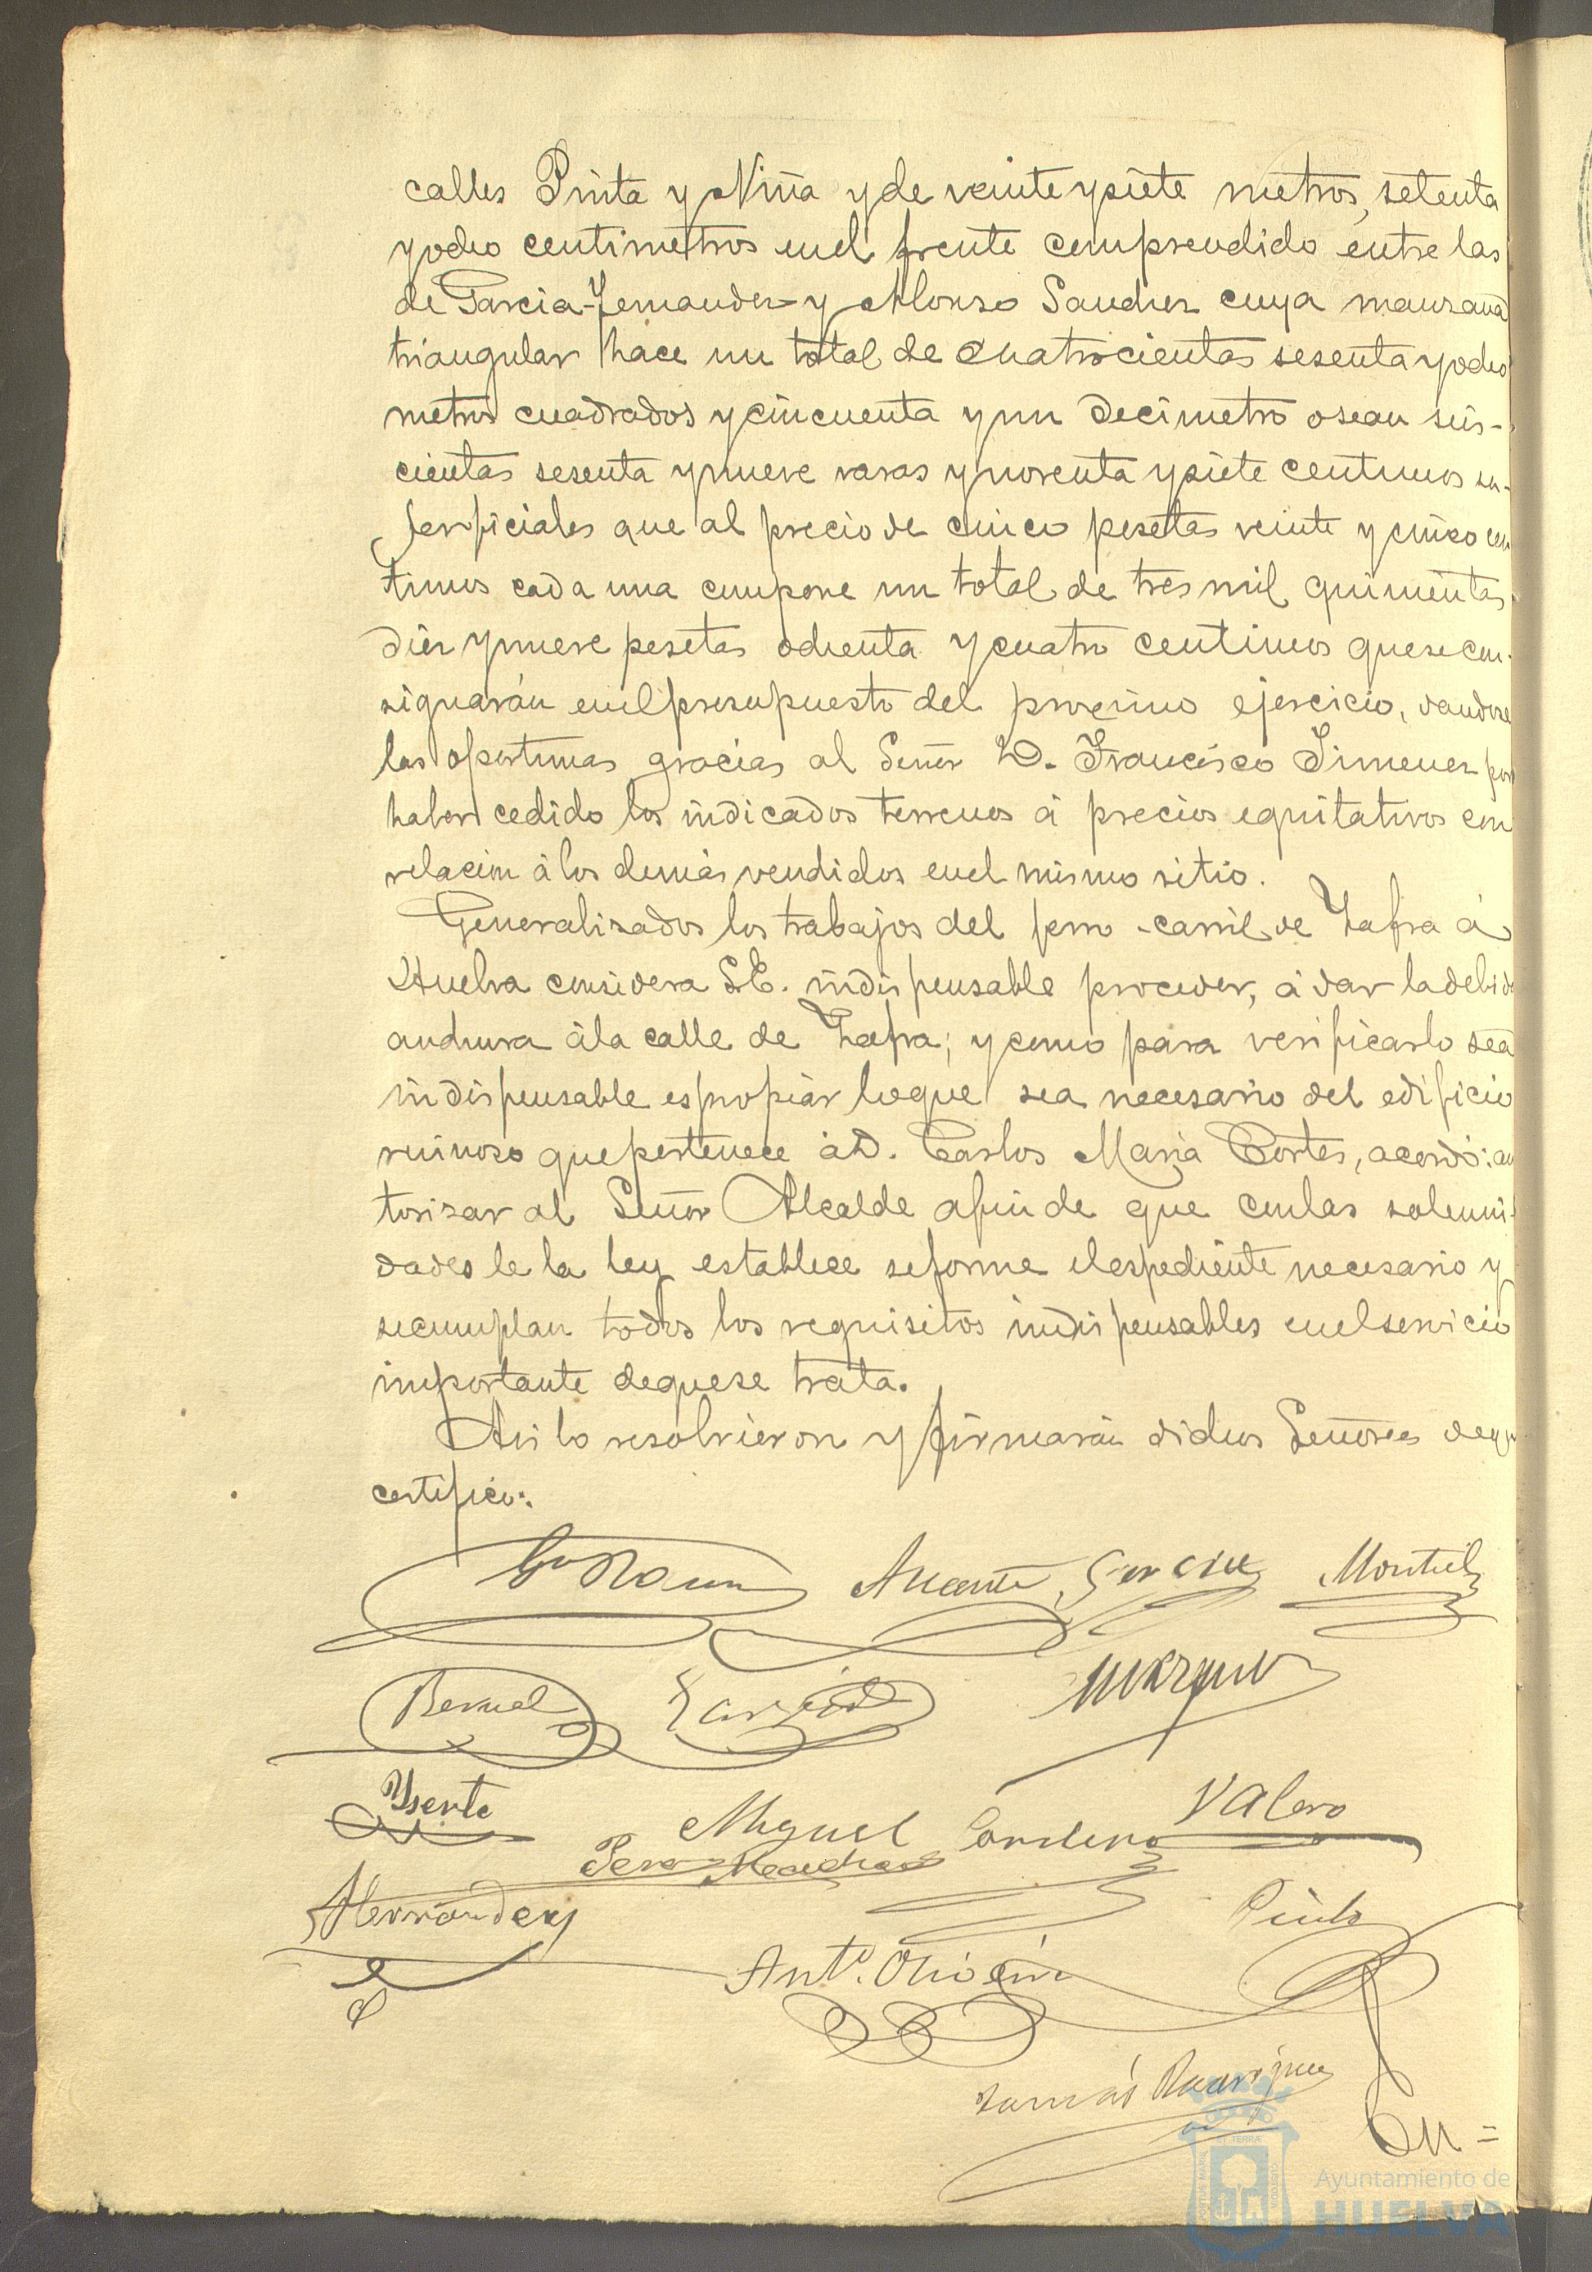 calles Pinta y Niña y de veinte y siete metros, setenta
y ocho centimetros en el frente comprendido entre las
de Garcia-Fernandez y Alonso Sanchez cuya manzana
triangular hace un total de cuatrocientos sesenta y ocho
metros cuadrados y cincuenta y un decimetro o sean seis-
cientas sesenta y nueve varas y noventa y siete centimos su-
perficiales que al precio de cinco pesetas veinte y cinco cen
timos cada una compone un total de tres mil quinientas
diez y nueve pesetas ochenta y cuatro centimos que se con-
signarán en el presupuesto del procsimo ejercicio, dandose
las oportunas gracias al Señor D. Francisco Jimenez por
haber cedido los indicados terrenos á precios equitativos con
relacion á los demás vendidos en el mismo sitio.
Generalizados los trabajos del ferro-carril de Zafra á
Huelva considera S.E. indispensable proceder, á dar la debida
anchura á la calle de Zafra; y como para verificarlo sea
indispensable espropiar lo que sea necesario del edificio
ruinoso que pertenece á D. Carlos Maria Cortes, acordó: au
torizar al Señor Alcalde a fin de que con las solemni-
dades le la ley establece se forme el espediente necesario y
se cumplan todos los requisitos indispensables en el servicio
importante de que se trata.
Asi lo resolvieron y firmarán dichos Señores de que
certifico:.
Garcia Montiel
Bernal Garcia Marquez
Yserte Miguel Cordero Valero
Hernandez Pinto
Ant.º Oliveira
Tomás Rodriguez
Ayuntamiento de
HUELVA